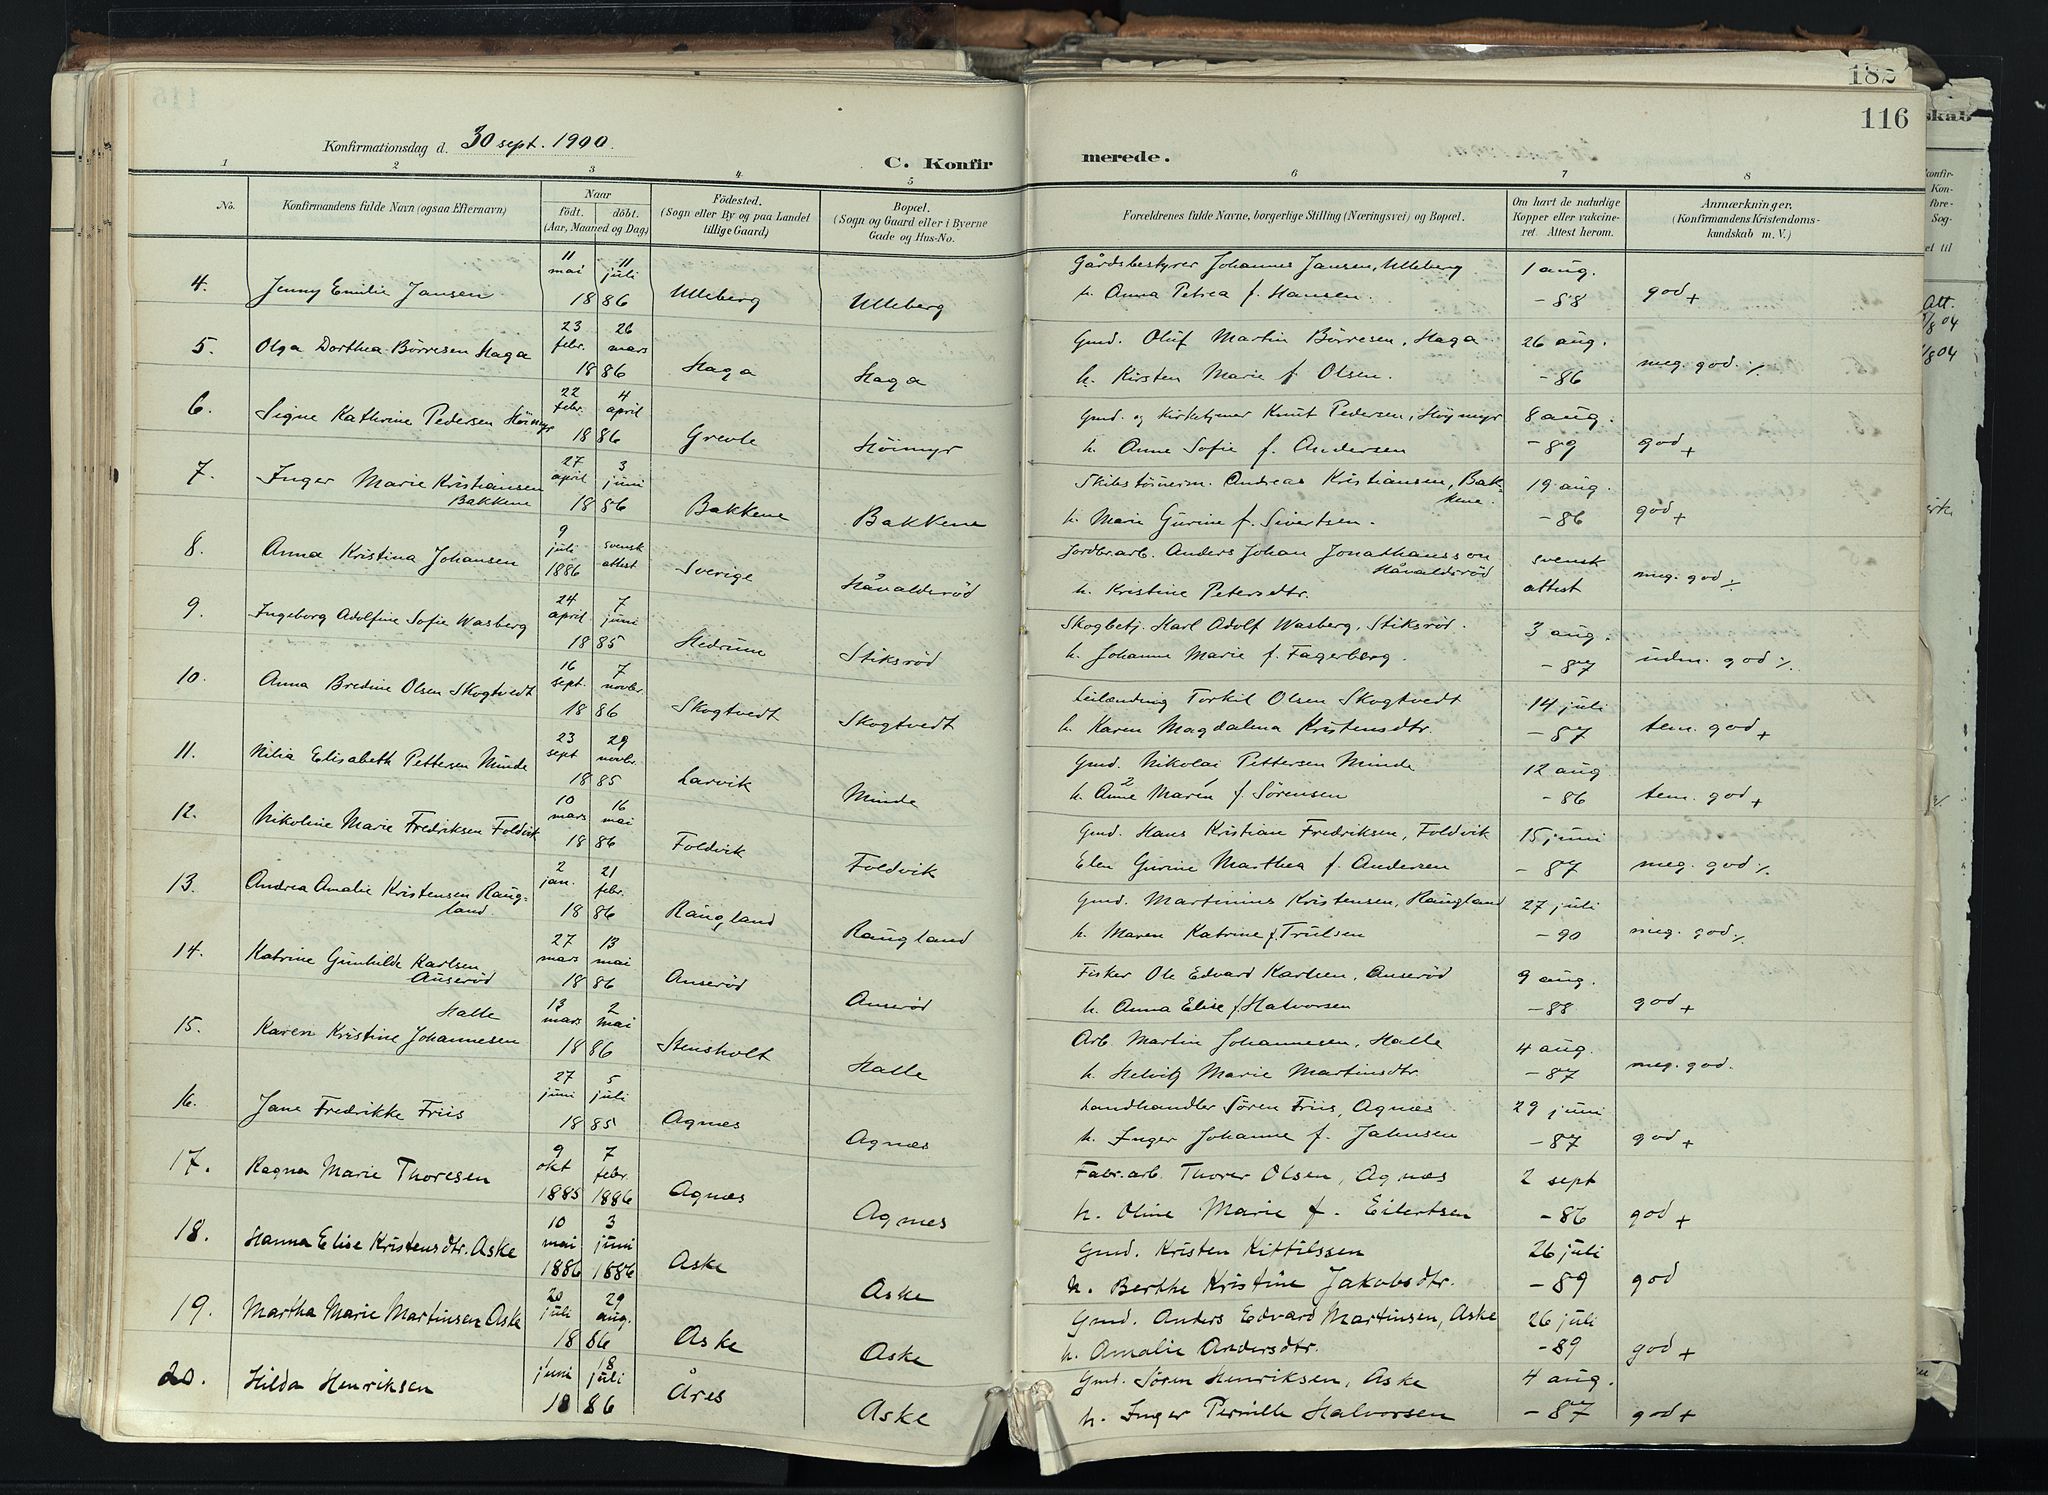 182
116
Konfirmationsdag d. 30 sept. 1900.
C. Konfirmerede.
1 2 3 4 5 6 7 8
No.
Konfirmandens fulde Navn (ogsaa Efternavn)
Naar
født. døbt.
(Aar, Maaned og Dag)
Fødested.
(Sogn eller By og paa Landet
tillige Gaard)
Bopæl.
(Sogn og Gaard eller i Byerne
Gade og Hus-No.
Forældrenes fulde Navne, borgerlige Stilling (Næringsvei) og Bopæl.
Om havt de naturlige
Kopper eller vaccine-
ret. Attest herom.
Anmærkninger.
(Konfirmandens Kristendoms-
kundskab m. V.)
4. Jenny Emilie Jansen 11 mai 11 juli 1886 Ulleberg Ulleberg
Gårdsbestyrer Johannes Jansen, Ulleberg 1 aug.
h. Anna Petrea f. Hansen. - 88 god +
5. Olga Dorthea Börresen Haga 23 febr. 26 mars 1886 Haga Haga
Gmd. Oluf Martin Börresen, Haga 26 aug.
h. Kirsten Marie f. Olsen. - 86 meg. god. %
6. Signe Kathrine Pedersen Höimyr 22 febr. 4 april 1886 Grevle Höimyr
Gmd. og kirketjener Knut Pedersen, Höymyr 8 aug.
h. Anne Sofie f. Andersen - 89 god +
7. Inger Marie Kristiansen Bakkene 27 april 3 juni 1886 Bakkene Bakkene
Skibstömerm. Andreas Kristiansen, Bakkene. 19 aug.
h. Marie Gurine f. Sivertsen. - 86 god +
8. Anna Kristina Johansen 9 juli 1886 svensk attest Sverige Håvaldsröd
Jordbr.arb. Anders Johan Jonathansson Håvaldsröd svensk
h. Kristine Petersdtr. attest meg. god %
9. Ingeborg Adolfine Sofie Wasberg 24 april 7 juni 1885 Hedrum Stiksröd
Skogbetj. Karl Adolf Wasberg, Stiksröd. 3 aug.
h. Johanne Marie f. Fagerberg. - 87 udm. god %
10. Anna Bredine Olsen Skogtvedt 16 sept. 7 novbr. 1886 Skogtvedt Skogtvedt
Leilænding Torkil Olsen Skogtvedt 14 juli
h. Karen Magdalena Kristensdtr. - 87 tem. god +
11. Nilia Elisabeth Pettersen Minde 23 sept 29 novbr. 1885 Larvik Minde
Gmd. Nikolai Pettersen Minde 12 aug
h. Anne Maren f. Sörensen - 86 tem. god +
12. Nikoline Marie Fredriksen Foldvik 10 mars 16 mai 1886 Foldvik Foldvik
Gmd. Hans Kristian Fredriksen, Foldvik 15 juni
Elen Gurine Marthea f. Andersen - 87 meg. god %
13. Andrea Amalie Kristensen Raugland 2 jan. 21 febr. 1886 Raugland Raugland
Gmd. Martinius Kristensen, Raugland 27 juli
h. Maren Katrine f. Trulsen - 90 meg. god %
14. Katrine Gunhilde Karlsen Auseröd 27 mars 13 mai 1886 Auseröd Auseröd
Fisker Ole Edvard Karlsen, Auseröd 9 aug.
h. Anna Elise f. Halvorsen - 88 god +
15. Karen Kristine Johannesen Halle 13 mars 2 mai 1886 Stensholt Halle
Arb. Martin Johannesen, Halle 4 aug.
h. Helvig Marie Martinsdtr. - 87 meg. god.
16. Jane Fredrikke Friis 27 juni 5 juli 1885 Agnæs Agnæs
Landhandler Sören Friis, Agnæs 29 juni
h. Inger Johanne f. Jahnsen - 87 god +
17. Ragna Marie Thoresen 9 okt 1885 7 febr. 1886 Agnæs Agnæs
Fabr.arb. Thorer Olsen, Agnæs 2 sept
h. Oline Marie f. Eilertsen - 86 god +
18. Hanna Elise Kristensdtr. Aske 10 mai 1886 3 juni 1886 Aske Aske
Gmd. Kristen Kittilssen 26 juli
h. Berthe Kristine Jakobsdtr. - 89 god
19. Martha Marie Martinsen Aske 20 juli 29 aug. 1886 Aske Aske
Gmd. Anders Edvard Martinsen, Aske 26 juli
h. Amalie Andersdtr. - 89 god +
20. Hilda Henriksen 1 juni 18 juli 1886 Åres Aske
Gmd. Sören Henriksen, Aske 4 aug.
h. Inger Pernille Halvorsen - 87 god +